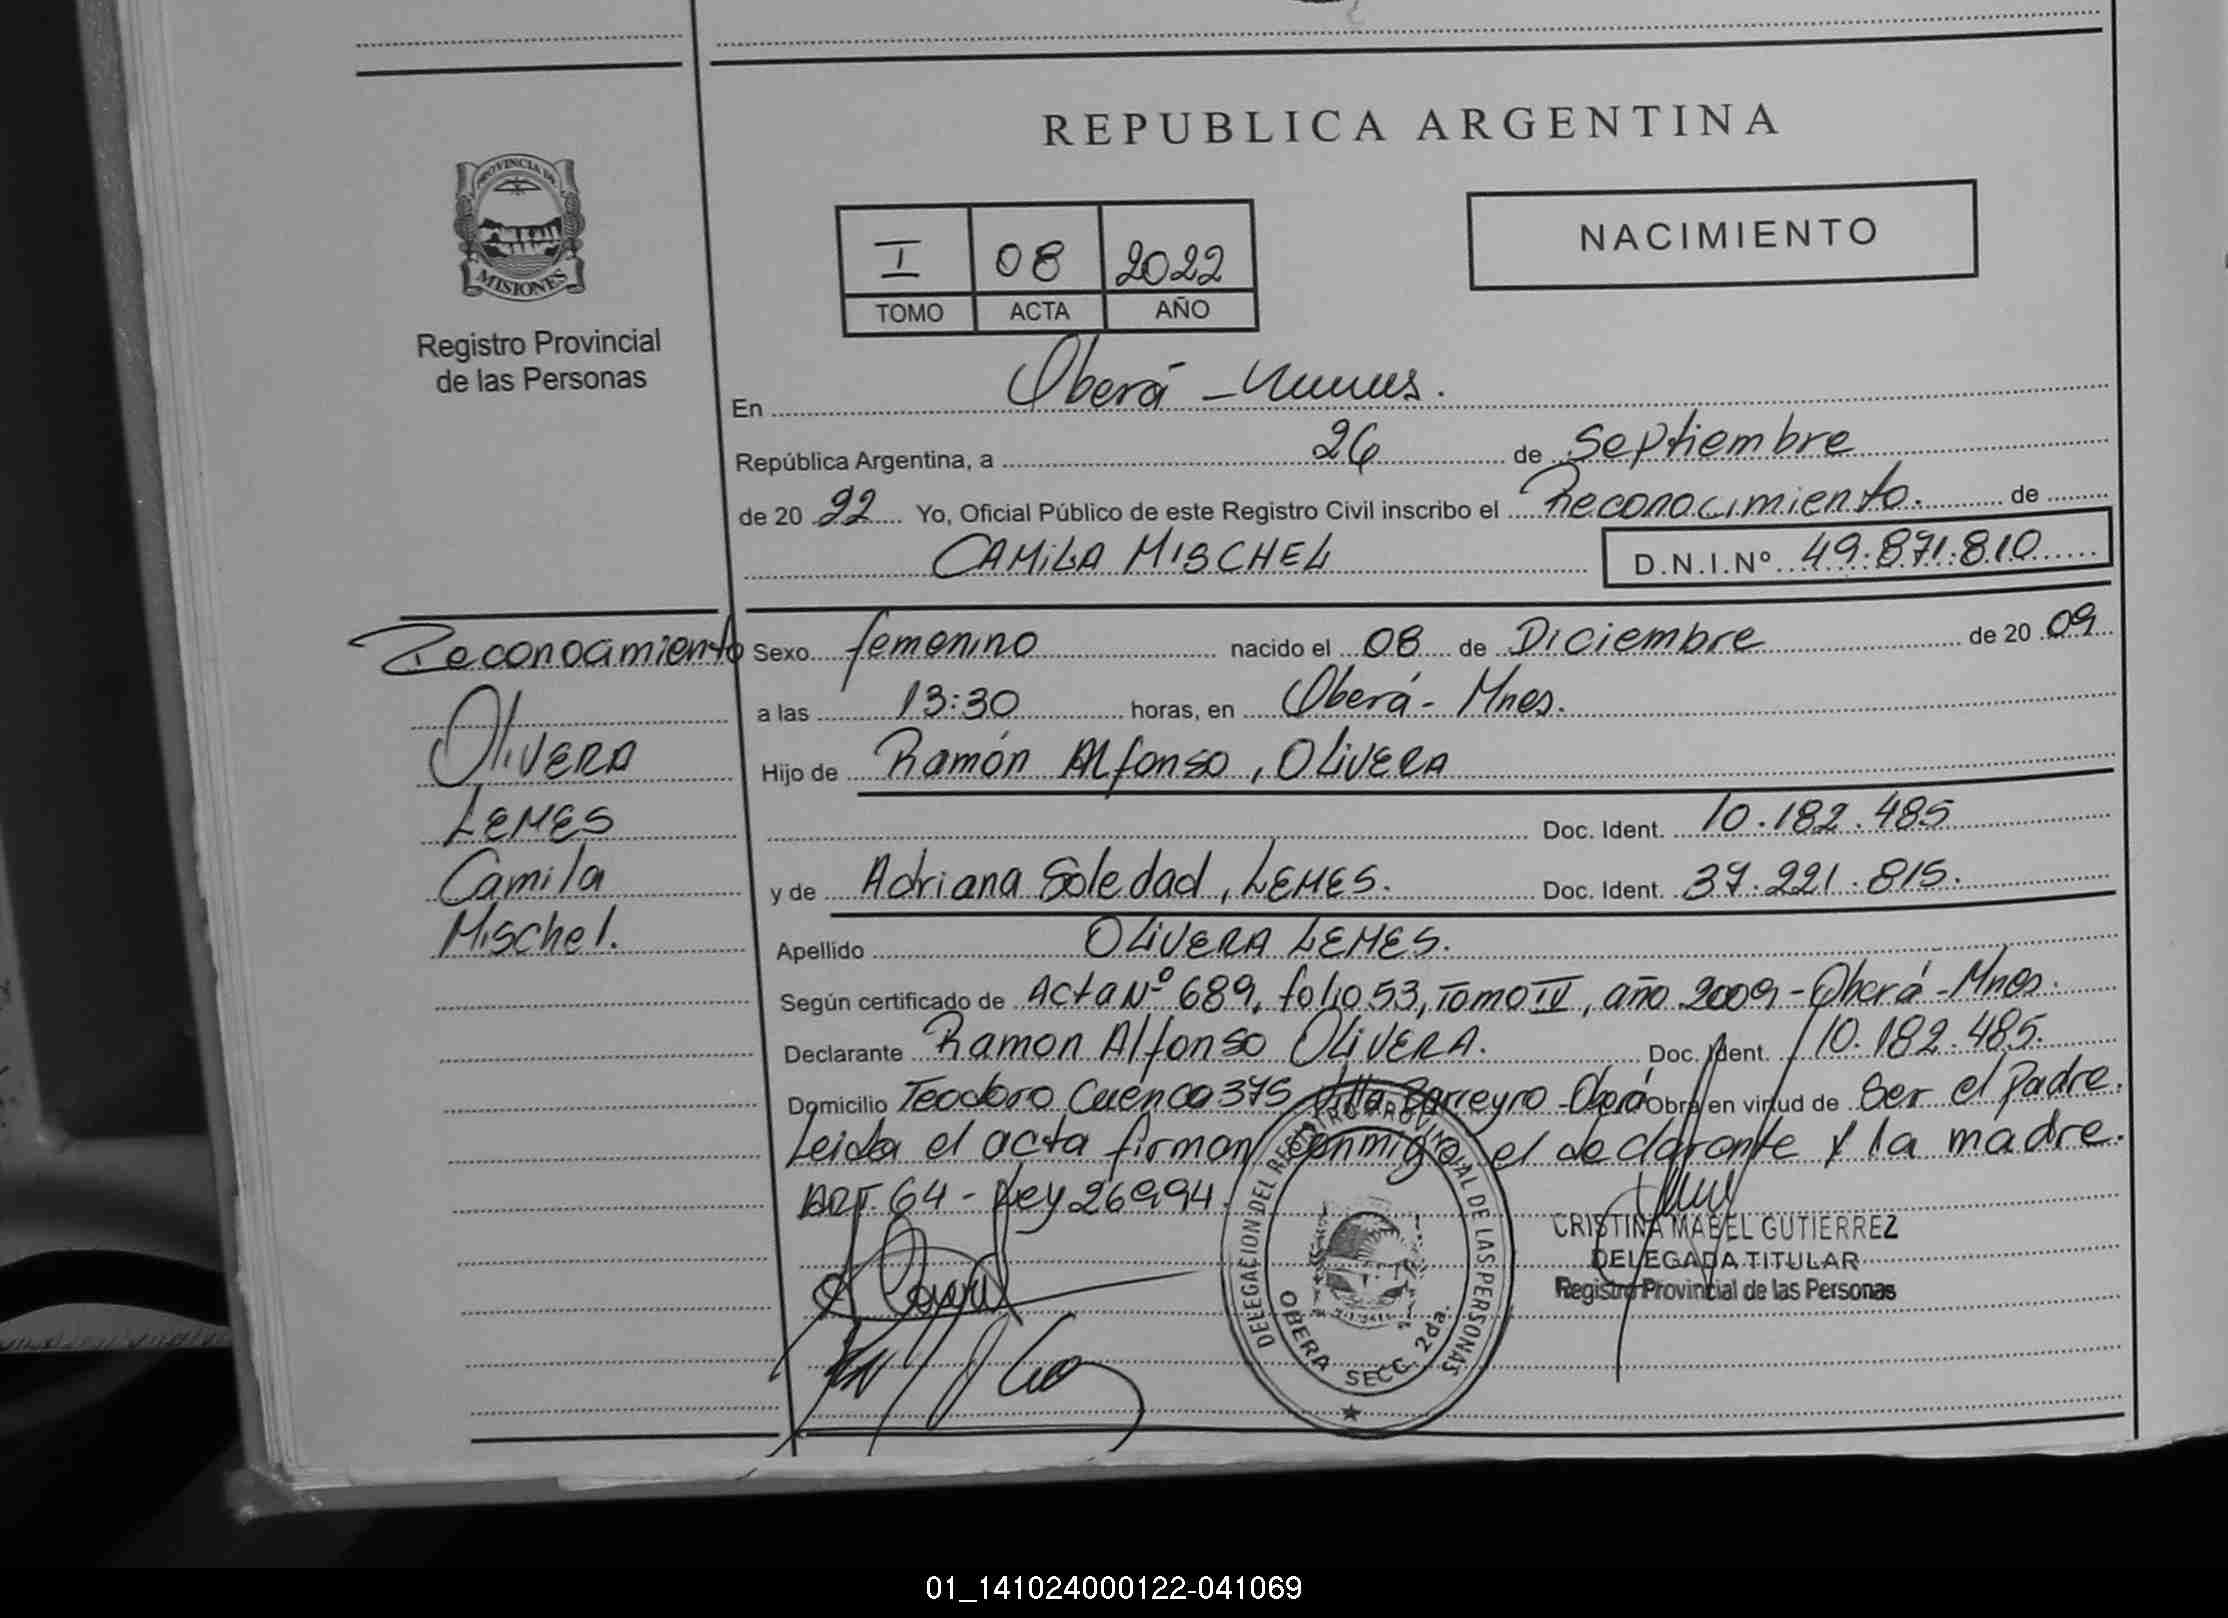 REPUBLICA ARGENTINA
PROVINCIA DE
MISIONES
Registro Provincial
de las Personas
I 08 2022
TOMO ACTA AÑO
NACIMIENTO
En Oberá -
República Argentina, a 26 de Septiembre
de 20 22 Yo, Oficial Público de este Registro Civil inscribo el Reconocimiento. de
CAMILA MISCHEL D.N.I.Nº 49.871.810
Reconocimiento
OLIVERA
LEMES
Camila
Mischel.
Sexo femenino nacido el 08 de Diciembre de 20 09
a las 13:30 horas, en Oberá - Mnes.
Hijo de Ramón Alfonso, OLIVERA
Doc. Ident. 10.182.485
y de Adriana Soledad, LEMES. Doc. Ident. 37.221.815.
Apellido OLIVERA LEMES.
Según certificado de Acta Nº 689, folio 53, Tomo IV, año 2009 - Oberá - Mnes.
Declarante Ramon Alfonso OLIVERA. Doc. Ident. 10.182.485.
Domicilio Teodoro Cuenca 375 Villa Barreyro - Oberá Obra en virtud de Ser el Padre.
Leida el acta firman conmigo el declarante y la madre.
ART. 64 - Ley 26994.
DELEGACION DEL REGISTRO PROVINCIAL DE LAS PERSONAS
OBERA SECC. 2da.
CRISTINA MABEL GUTIERREZ
DELEGADA TITULAR
Registro Provincial de las Personas
01_141024000122-041069